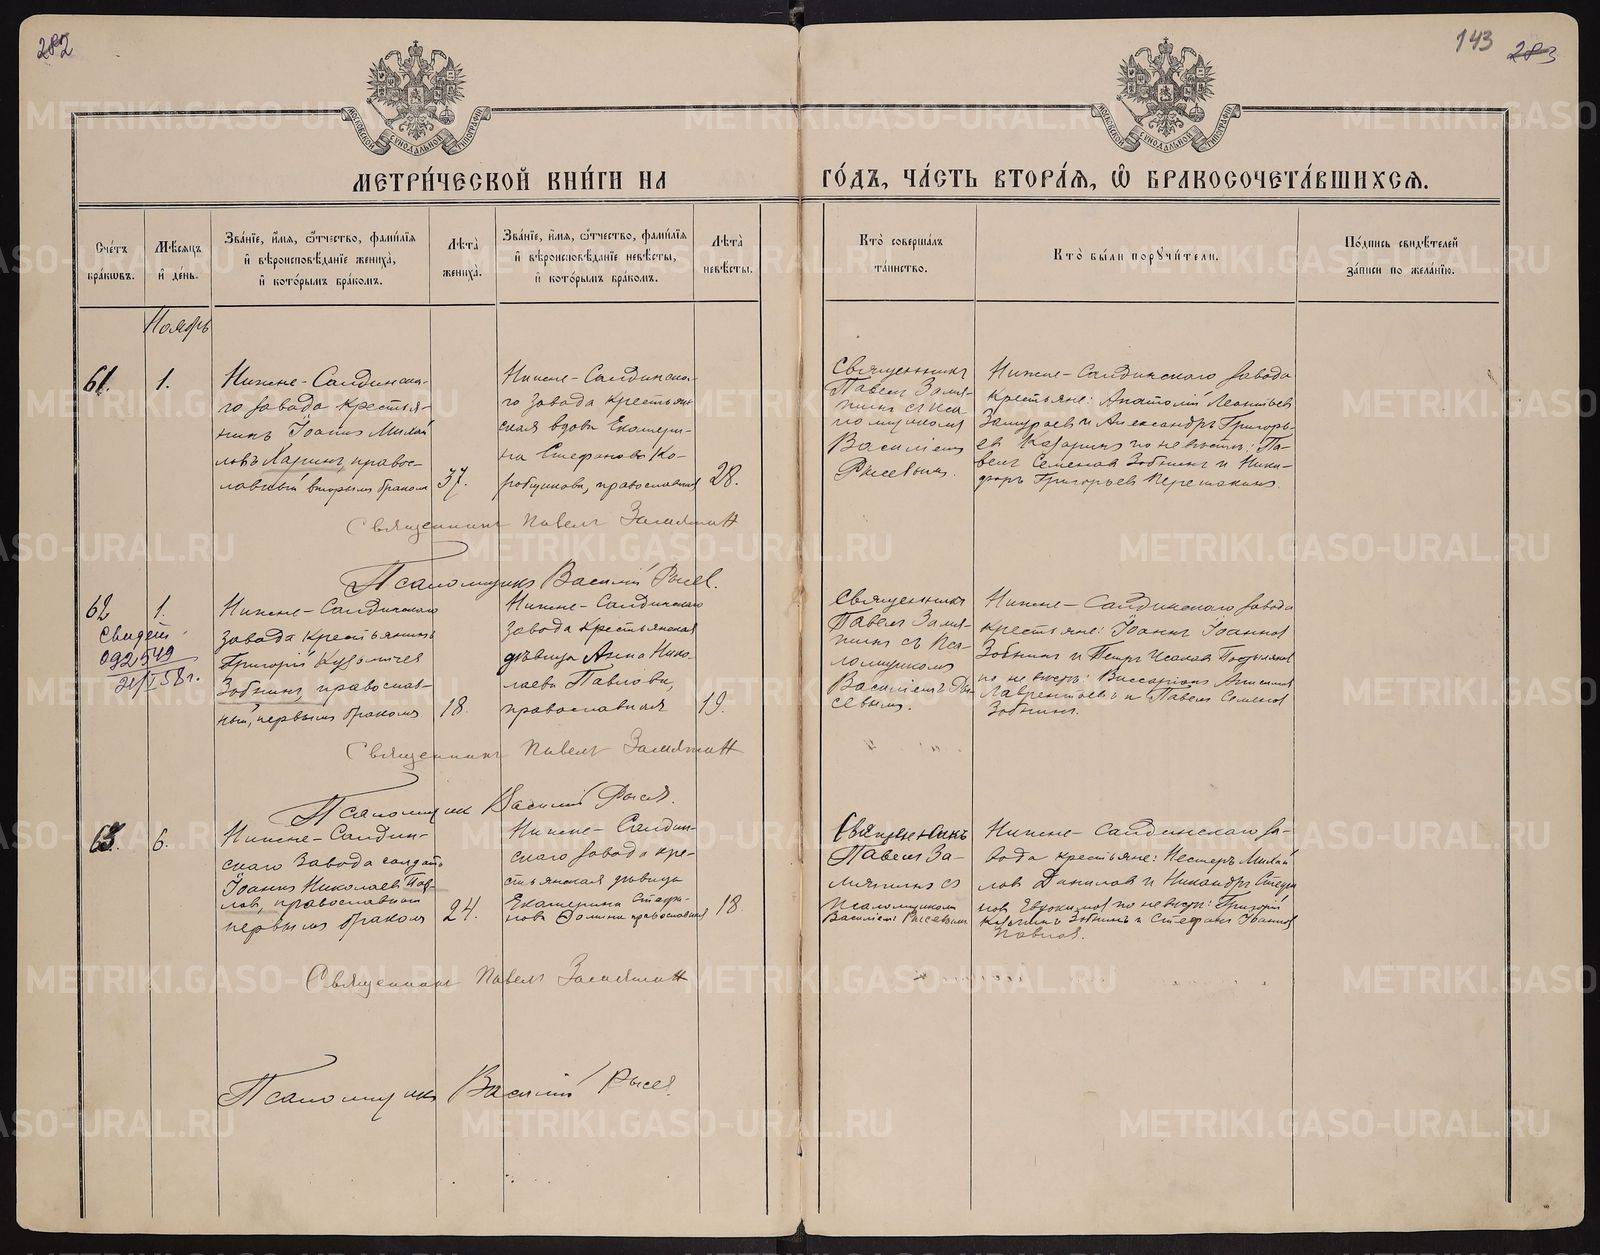 282
143 283
МОСКОВСКОЙ СѴНОДАЛЬНОЙ ТИПОГРАФІИ
МОСКОВСКОЙ СѴНОДАЛЬНОЙ ТИПОГРАФІИ
МЕТРИ́ЧЕСКОЙ КНИ́ГИ НА
ГО́ДЪ, ЧА́СТЬ ВТОРА́Я, Ѽ БРАКОСОЧЕТА́ВШИХСЯ.
Сче́тъ
бра́ковъ.
Мѣ́сяцъ
и́ де́нь.
Зва́нїе, и́мя, ѻ҆́тчество, фами́лїя
и҆ вѣроисповѣ́данїе жениха̀,
и҆ кото́рымъ бра́комъ.
Лѣта̀
жениха̀.
Зва́нїе, и́мя, ѻ҆́тчество, фами́лїя
и҆ вѣроисповѣ́данїе невѣ́сты,
и҆ кото́рымъ бра́комъ.
Лѣта̀
невѣ́сты.
Кто̀ соверша́лъ
та́инство.
Кто̀ бы́ли порꙋчи́тели.
По́дпись свидѣ́телей
за́писи по жела́нїю.
Ноябрь
61.
1.
Нижне-Салдинска-
го завода крестья-
нинъ Іоаннъ Михай
ловъ Харинъ, правос-
лавный вторымъ бракомъ
37.
Нижне-Салдинска-
го завода крестьян
ская вдова Екатери-
на Стефанова Ко-
робщикова, православная
28.
Священникъ
Павелъ Замя-
тинъ съ Пса-
ломщикомъ
Василіемъ
Рысевымъ.
Нижне-Салдинскаго завода
крестьяне: Анатолій Леонтьев
и Александръ Григорь-
ев по невѣстѣ: Па-
велъ Семенов Зобнинъ и Ники-
форъ Григорьев
Священникъ Павелъ Замятин
Псаломщикъ Василій Рысев.
62
1.
Свидет.
092549
21/I 58 г.
Нижне-Салдинскаго
завода крестьянинъ
Григорій Кузьмичев
Зобнинъ, православ-
ный, первымъ бракомъ
18.
Нижне-Салдинскаго
завода крестьянская
дѣвица Анна Нико-
лаева Павлова,
православная
19.
Священникъ
Павелъ Замя-
тинъ съ Пса-
ломщикомъ
Василіемъ Ры-
севымъ.
Нижне-Салдинскаго завода
крестьяне: Іоаннъ Іоаннов
Зобнинъ и Петръ Исаков
по невѣстѣ: Виссаріонъ Анисимов
Лаврентьевъ и Павелъ Семенов
Зобнинъ.
Священникъ Павелъ Замятин
Псаломщик Василій Рысев.
63.
6.
Нижне-Салдин-
скаго Завода солдатъ
Іоаннъ Николаев Пав-
лов, православный
первымъ бракомъ
24.
Нижне-Салдин-
скаго завода кре-
стьянская дѣвица
Екатерина Стефа-
нова православная
18.
Священникъ
Павелъ За-
мятинъ съ
Псаломщикомъ
Василіемъ Рысевымъ
Нижне-Салдинскаго за-
вода крестьяне: Несторъ Михай
лов Данилов и Никандръ Стефа
нов Евдокимов по невѣстѣ: Григорій
Кузьминъ Зобнинъ и Стефанъ Іоаннов
Павлов.
Священникъ Павелъ Замятин
Псаломщикъ Василій Рысев.
METRIKI.GASO-URAL.RU